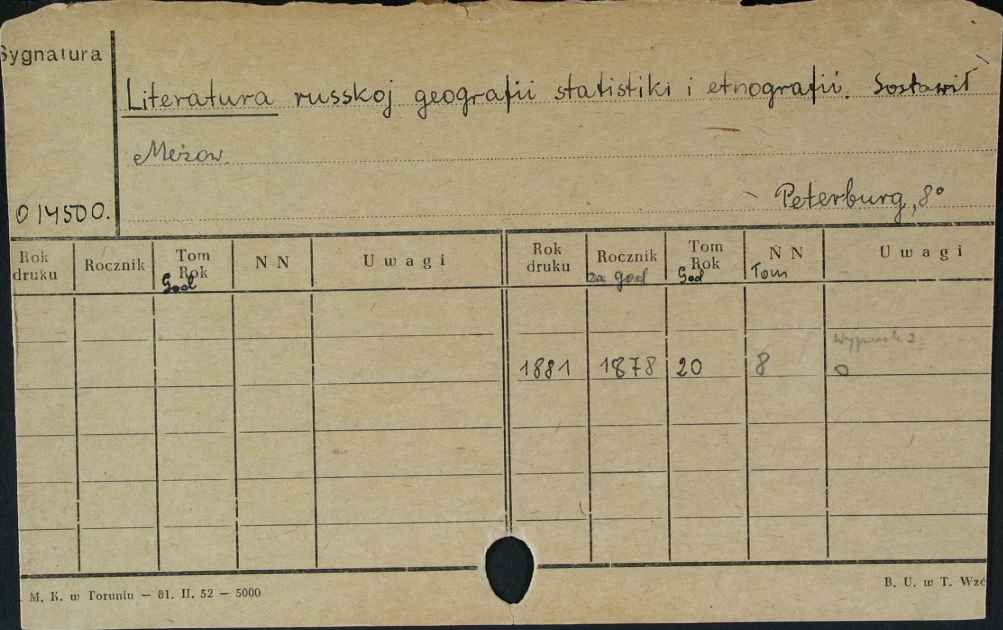 Sygnatura
Literatura russkoj geografii statistiki i etnografii. Sostawił
Meżow.
014500.
Peterburg, 8°
Rok druku Rocznik Tom Rok N N Uwagi Rok druku Rocznik Tom Rok N N Uwagi
God za god God Tom
1881 1878 20 8 0
M. K. w Toruniu — 81. II. 52 — 5000
B. U. w T. Wzó